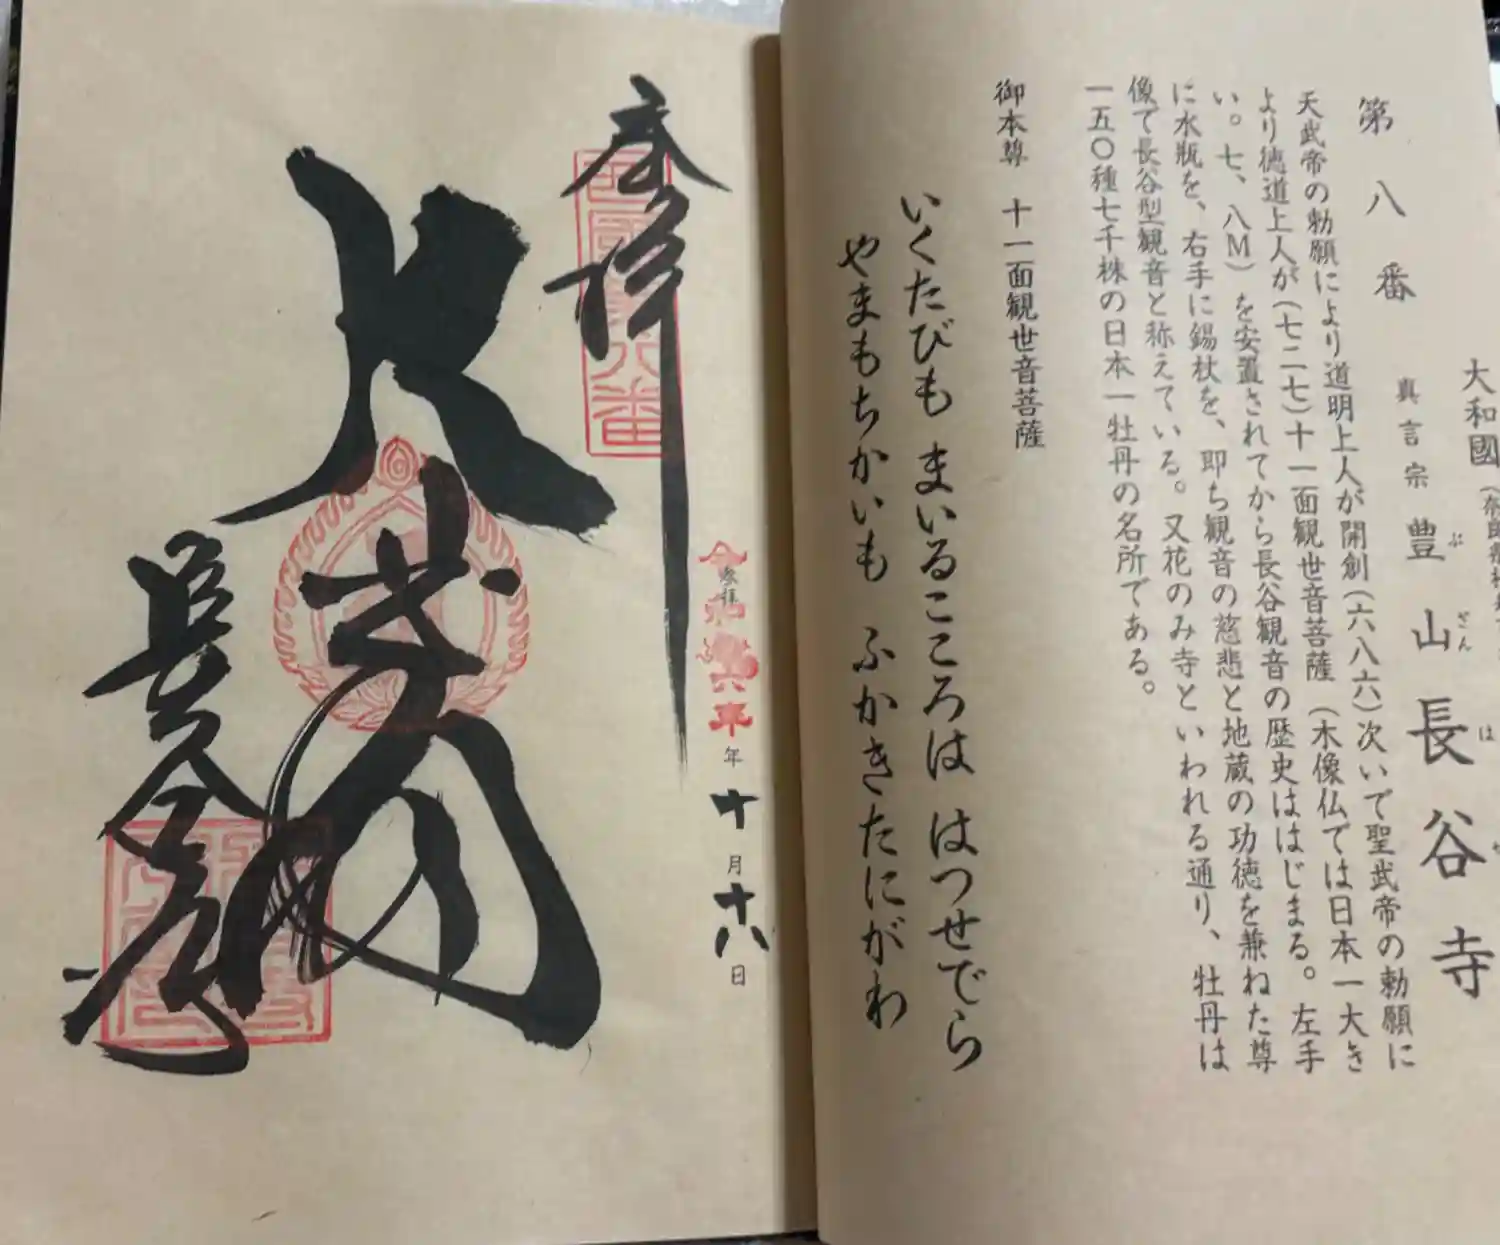 大和國
第八番 真言宗 豊山 長谷寺
ぶ ざん は
天武帝の勅願により道明上人が開創(六八六)次いで聖武帝の勅願に
より徳道上人が(七二七)十一面観世音菩薩(木像仏では日本一大き
い。七、八M)を安置されてから長谷観音の歴史ははじまる。左手
に水瓶を、右手に錫杖を、即ち観音の慈悲と地蔵の功徳を兼ねた尊
像で長谷型観音と称えている。又花のみ寺といわれる通り、牡丹は
一五〇種七千株の日本一牡丹の名所である。
御本尊 十一面観世音菩薩
いくたびも まいるこころは はつせでら
やまもちかいも ふかきたにがわ
令和六年年十月十八日
奉拝
大悲閣
長谷寺